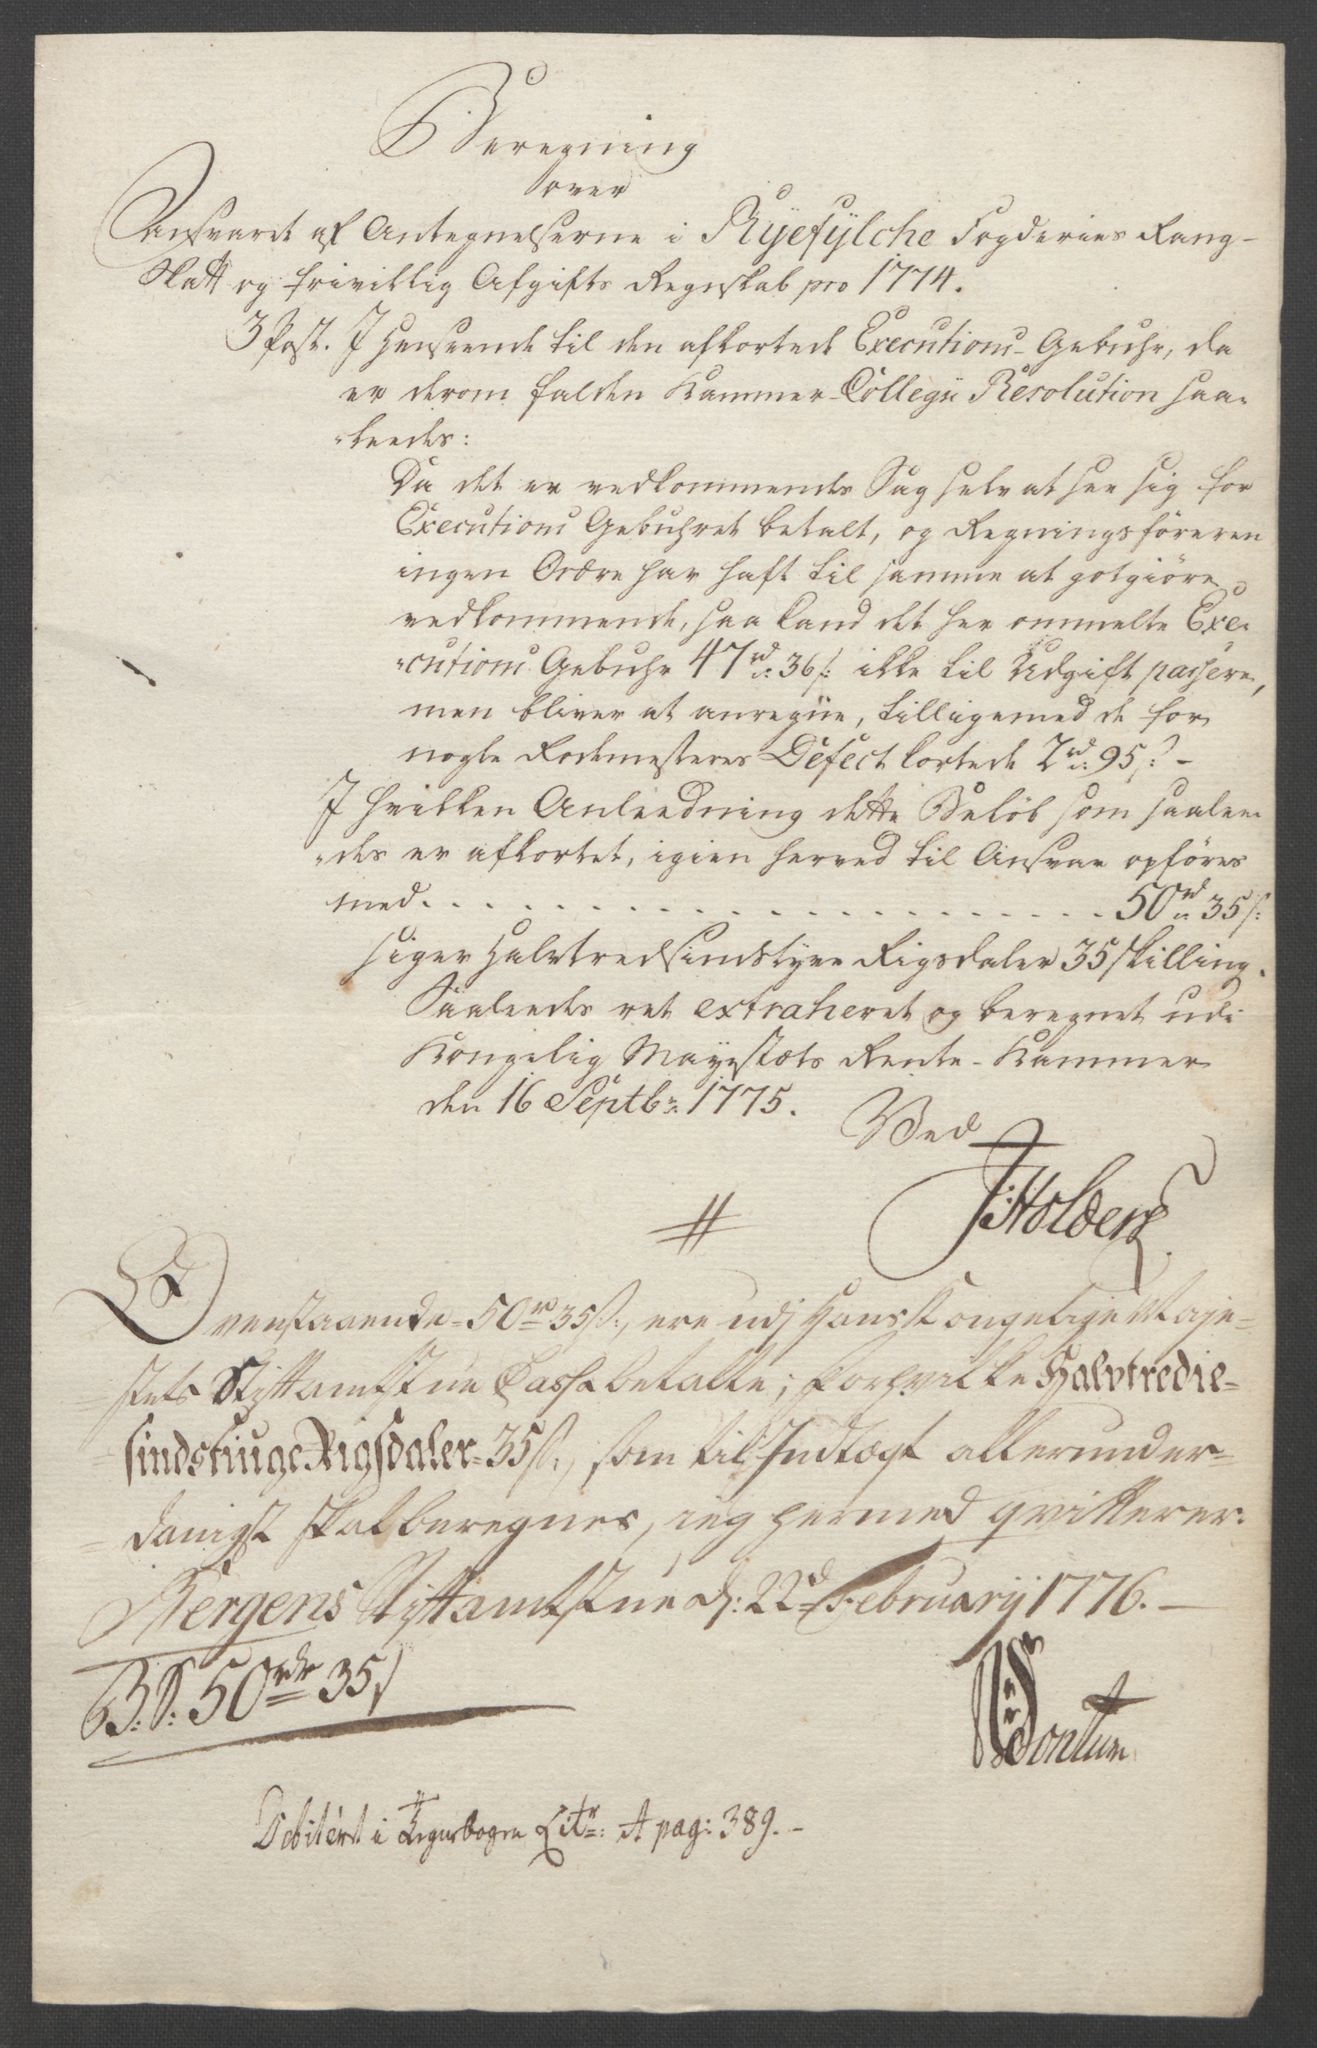 Beregning
over
Ansvaret af Antegnelserne i Ryefylche Fogderies Rang-
Skatt og frivillig Afgifts Regnskab pro 1774.
3 Post. I Henseende til den afkortede Executions-Gebuhr, da
er derom falden Kammer-Collegii Resolution saa-
-leedes:
Da det er vedkommendes Sag selv at see sig for
Executions Gebuhret betalt, og Regningsföreren
ingen Ordre har haft til samme at gotgiöre
vedkommende, saa kand det her ommelte Exe-
-cutions Gebuhr 47 rd: 36 s: ikke til Udgift passere,
men bliver at anregne, tilligemed de for
nogle Rodemesteres Defect kortede 2 rd: 95 s: -
I hvilken Anleedning dette Belöb som saalee-
-des er afkortet, igien herved til Ansvar opföres
med . . . . . . . . . . . . . . . . . . . . . . . . 50 rd 35 s:
siger Halvtredsindstyve Rigsdaler 35 skilling.
Saaleedes ret extraheret og beregnet udi
Kongelig Mayestæts Rente-Kammer
den 16 Septbr: 1775.
Ved
J: Holdery
#
Ovenstaaende 50 rd 35 s:, ere udj Hans Kongelige Maje-
-stets Stiftamtstue Cassa betalte; for hvilke Halvtredie-
-sindstiuge Rigsdaler 35 s:, som til Indtægt allerunder-
-danigst skal beregnes, ieg hermed qvitterer.
Bergens Stiftamtstue d: 22d February 1776. -
B: S: 50 rdr 35 s
Debitert i Regnsbogen Litr: A pag: 389. -